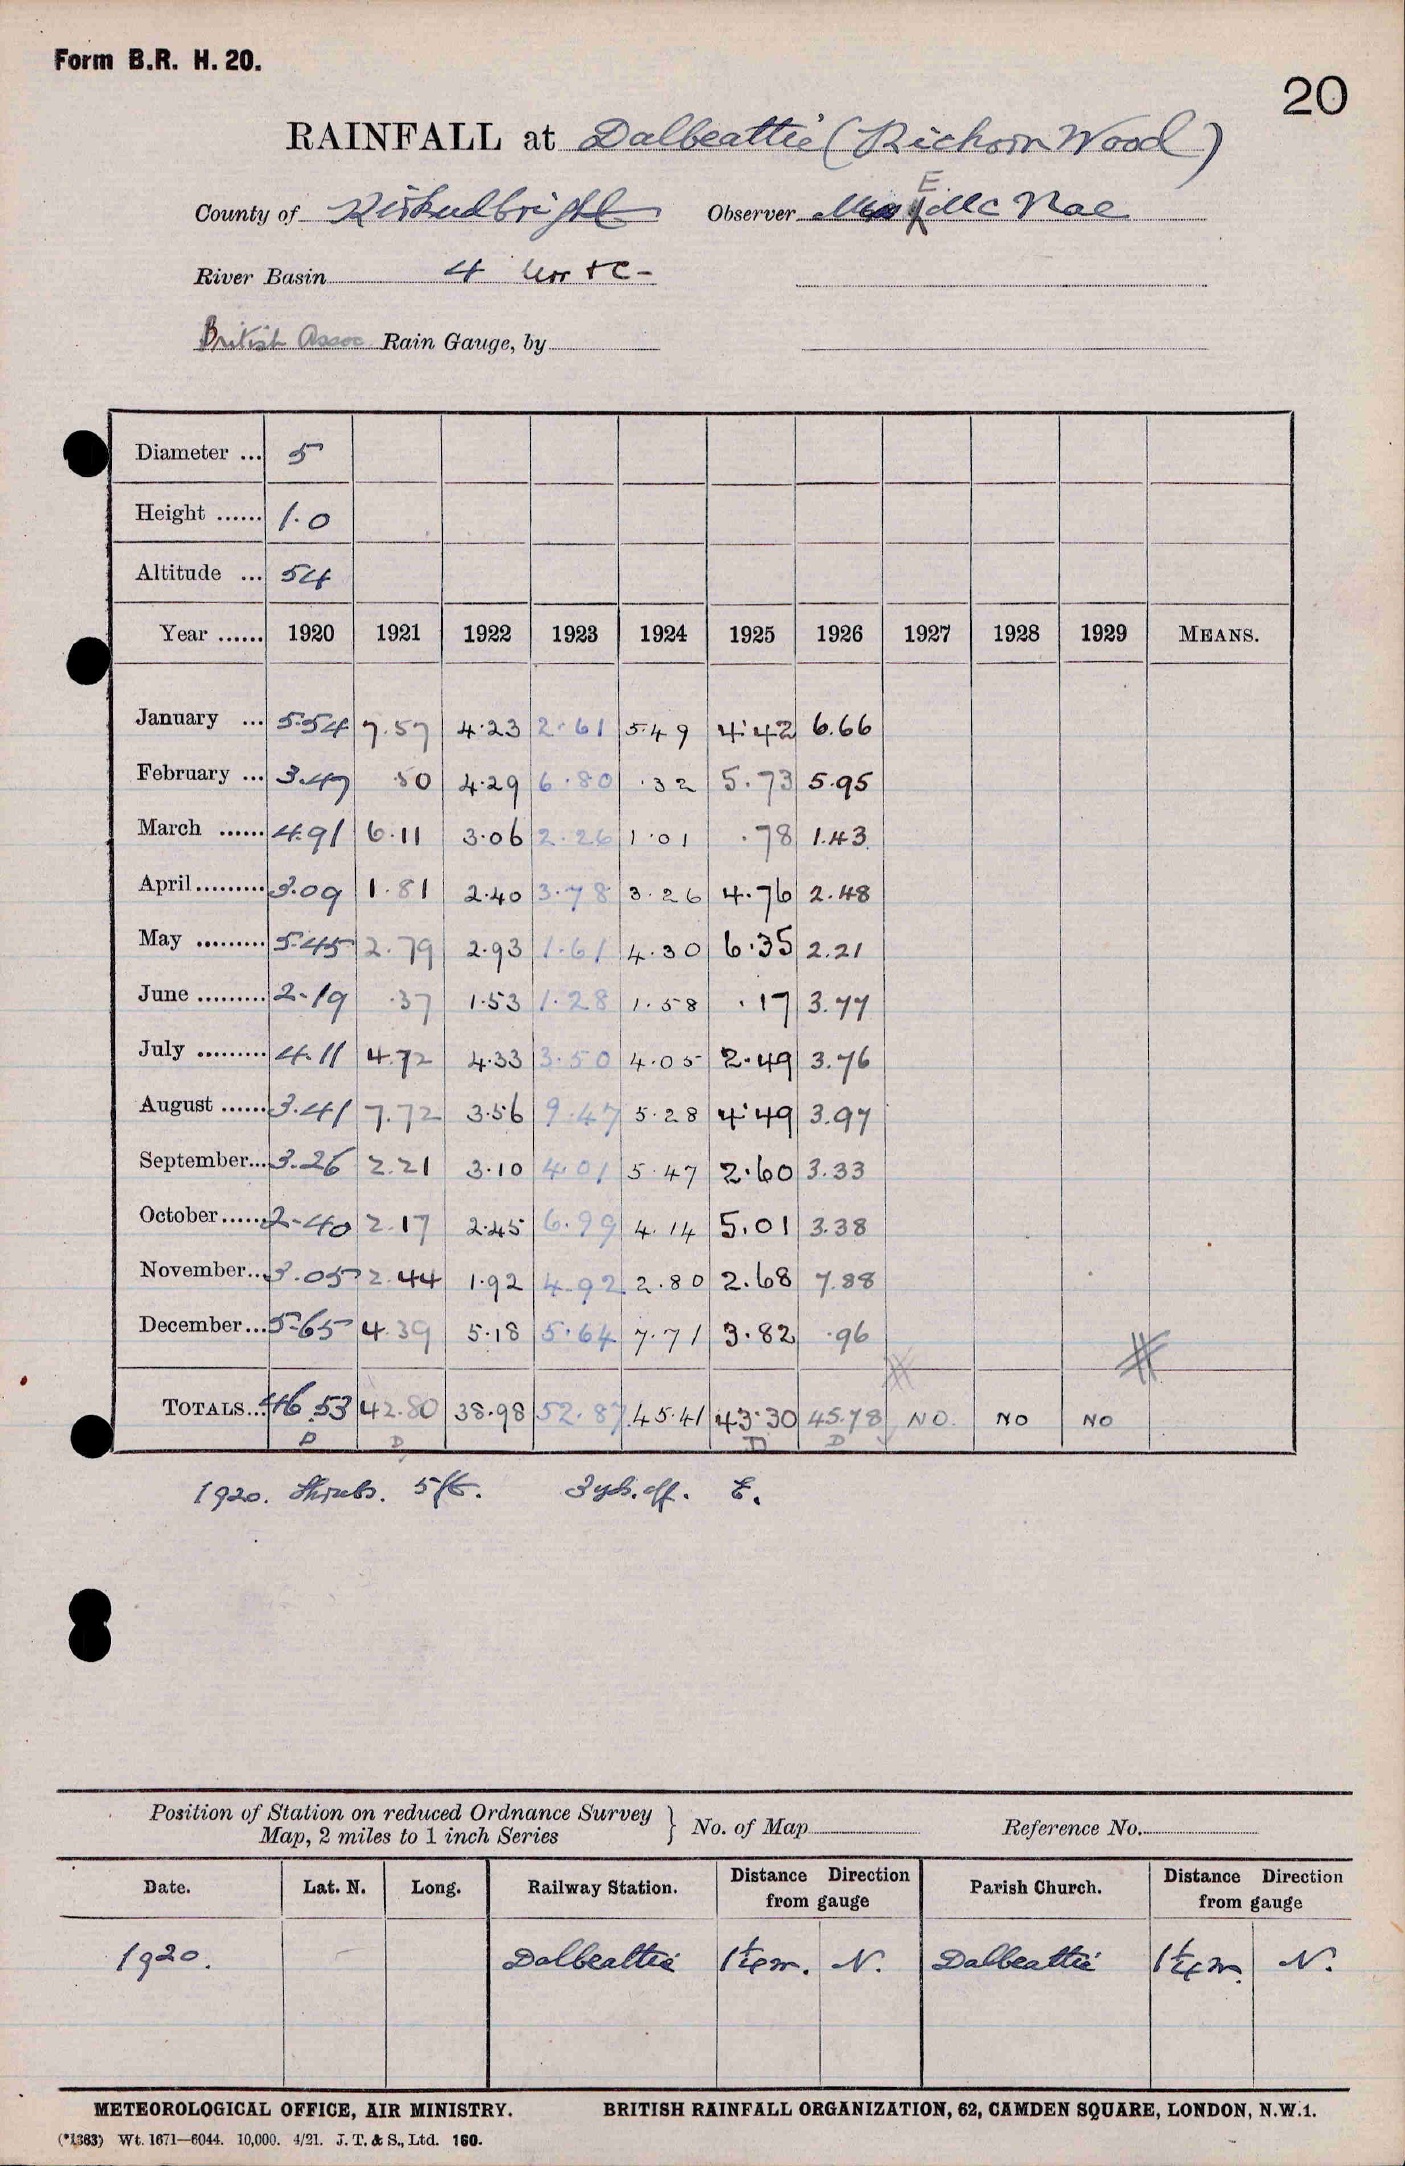 Form B.R. H. 20.
20
RAINFALL at Dalbeattie (Richorn Wood)
County of Kirkcudbright Observer E Mc Rae
River Basin 4 Urr + C-
British Assoc Rain Gauge, by
Diameter ... 5
Height ...... 1.0
Altitude ... 54
Year ...... 1920 1921 1922 1923 1924 1925 1926 1927 1928 1929 MEANS.
January ... 5.54 7.57 4.23 2.61 5.49 4.42 6.66
February ... 3.47 .50 4.29 6.80 .32 5.73 5.95
March ...... 4.91 6.11 3.06 2.26 1.01 .78 1.43
April ......... 3.09 1.81 2.40 3.78 3.26 4.76 2.48
May ......... 5.45 2.79 2.93 1.61 4.30 6.35 2.21
June ......... 2.19 .37 1.53 1.28 1.58 .17 3.77
July ......... 4.11 4.72 4.33 3.50 4.05 2.49 3.76
August ...... 3.41 7.72 3.56 9.47 5.28 4.49 3.97
September... 3.26 2.21 3.10 4.01 5.47 2.60 3.33
October ...... 2.40 2.17 2.45 6.99 4.14 5.01 3.38
November... 3.05 2.44 1.92 4.92 2.80 2.68 7.88
December ... 5.65 4.39 5.18 5.64 7.71 3.82 .96
TOTALS... 46.53 42.80 38.98 52.87 45.41 43.30 45.78 NO NO NO
D D D D
1920. Shrubs. 5ft. 3 yds. off. E.
Position of Station on reduced Ordnance Survey
Map, 2 miles to 1 inch Series } No. of Map Reference No.
Date. Lat. N. Long. Railway Station. Distance Direction from gauge Parish Church. Distance Direction from gauge
1920. Dalbeattie 1¼ m. N. Dalbeattie 1¼ m. N.
METEOROLOGICAL OFFICE, AIR MINISTRY. BRITISH RAINFALL ORGANIZATION, 62, CAMDEN SQUARE, LONDON, N.W.1.
(*1383) Wt. 1671—6044. 10,000. 4/21. J. T. & S., Ltd. 160.